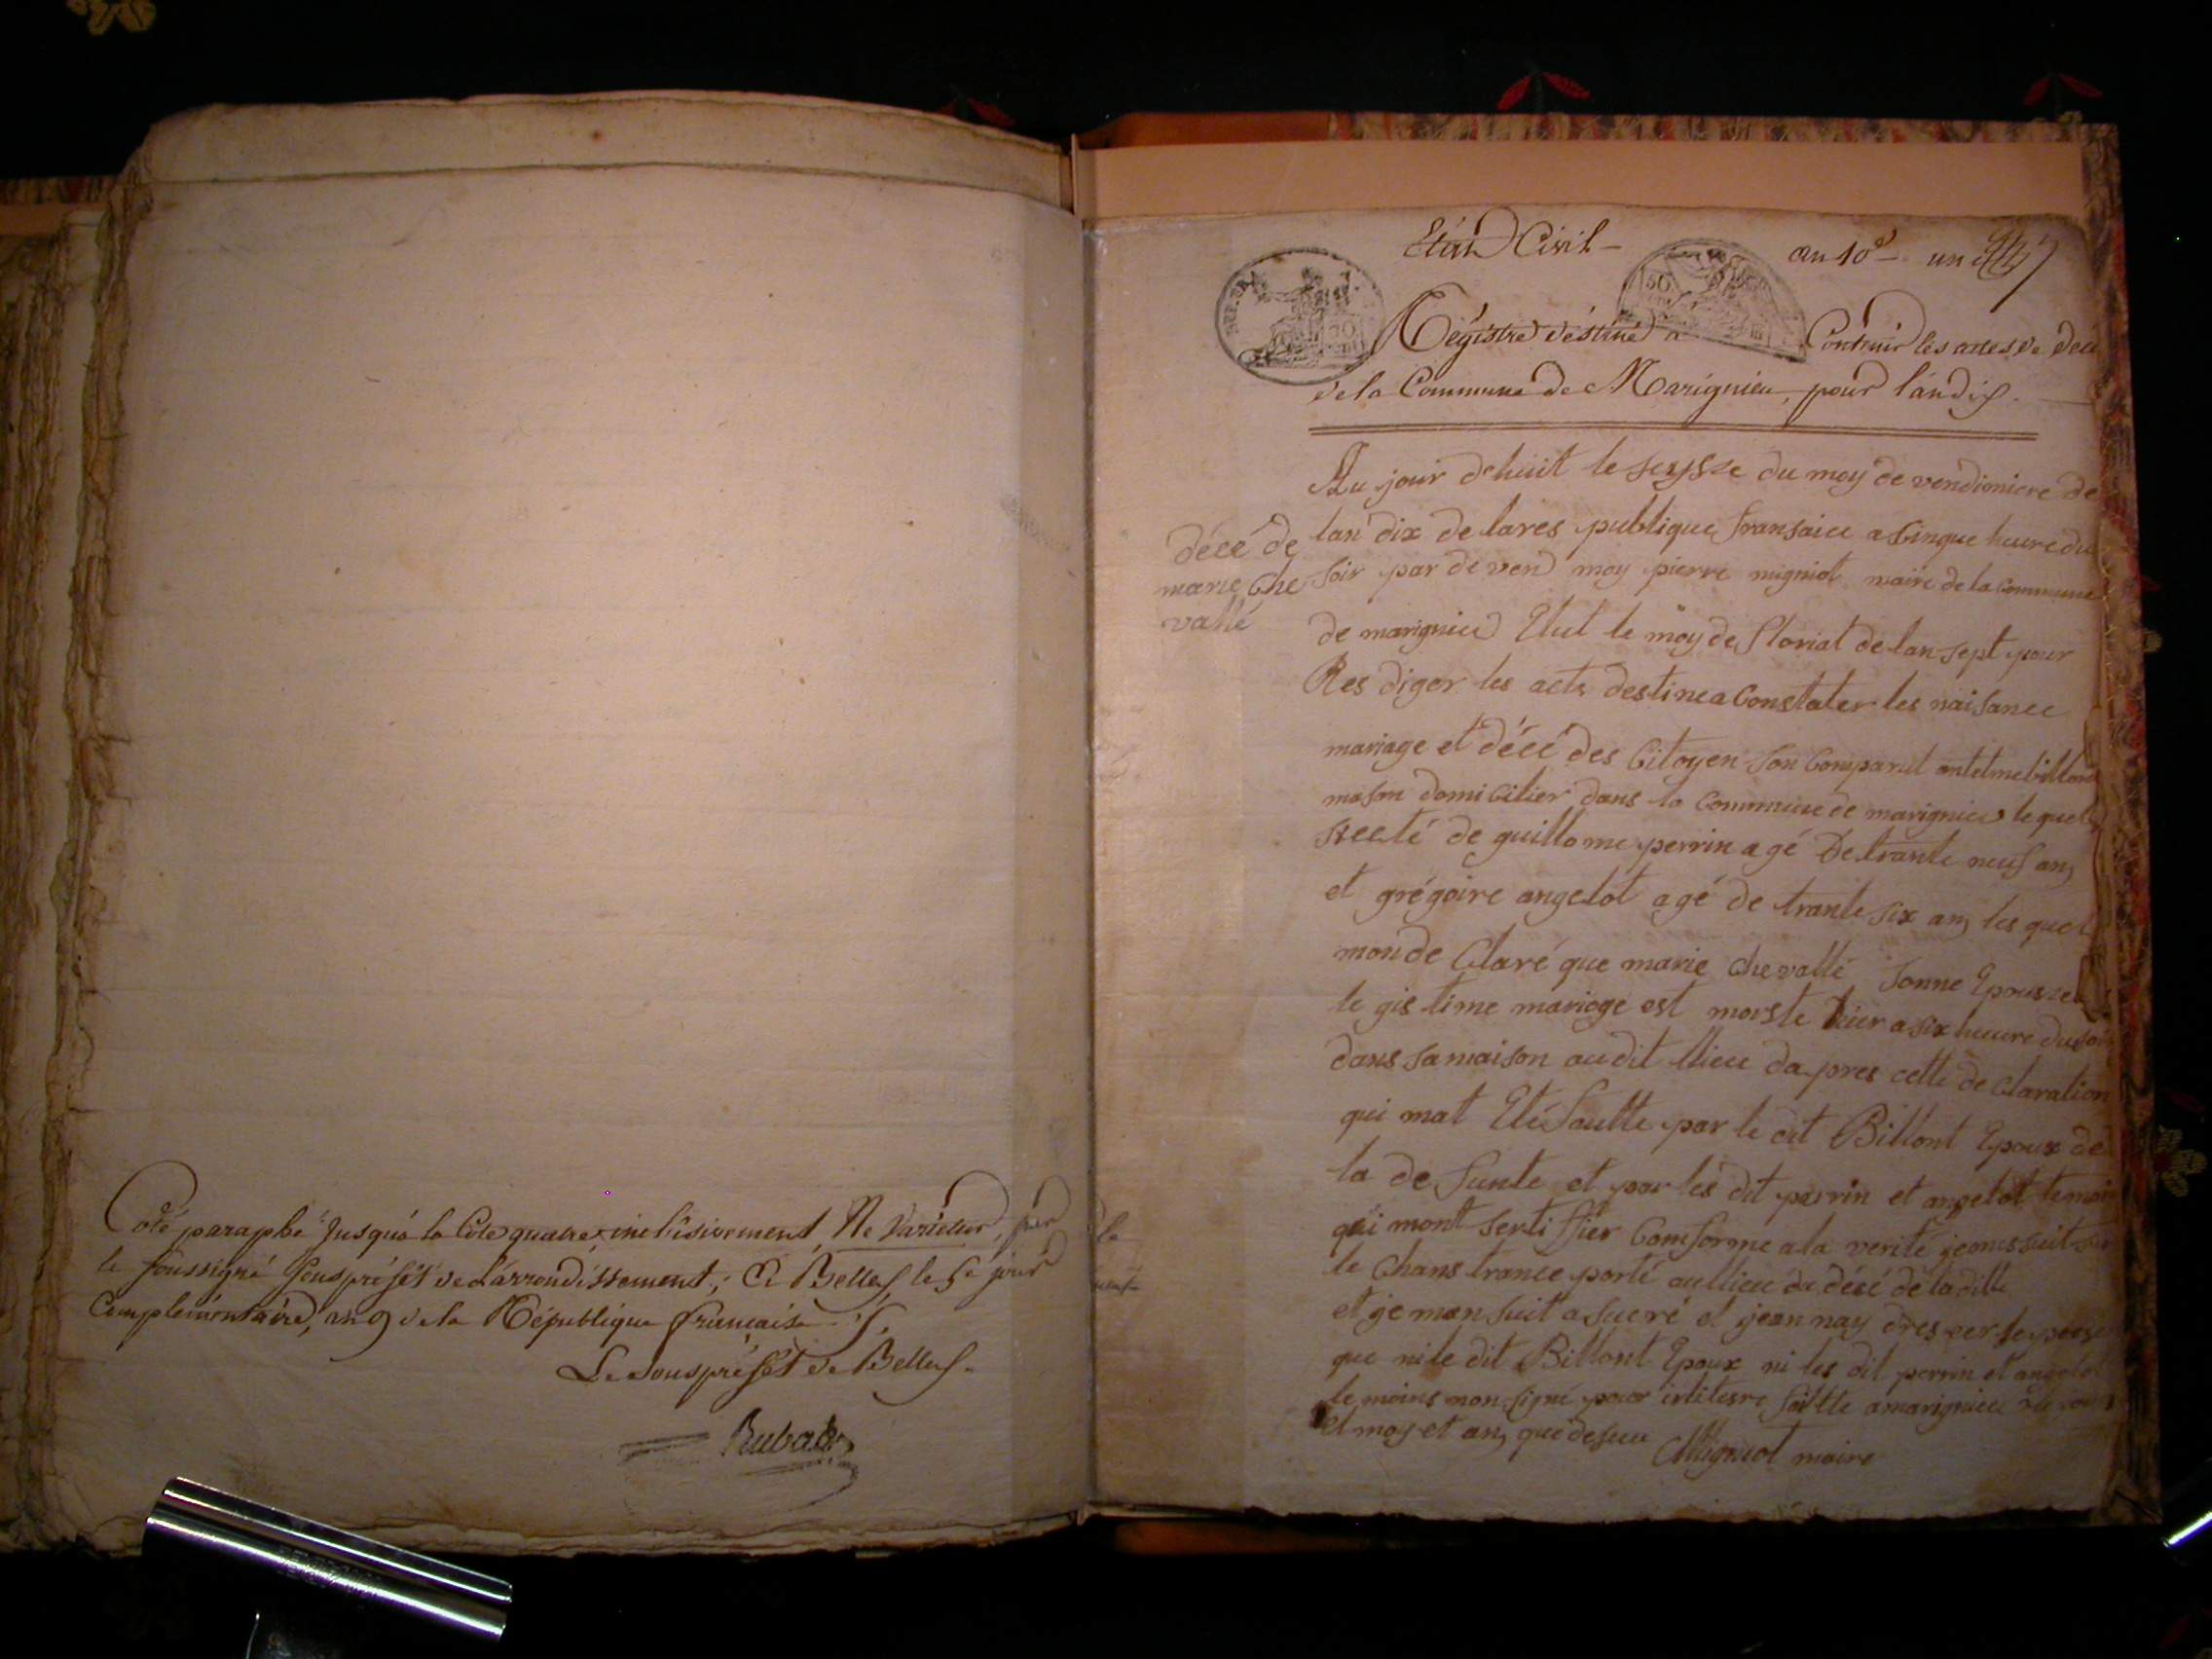 Coté paraphé Jusqu'à la Cote quatre inclusivement, Ne Varietur, par
le soussigné Souspréfét de L'arrondissement; A Belley, le 5e jour
Complémentaire, an 9 de la République française.
Le Souspréfét de Belley.
Rubat
Etat Civil
an 10e un
Régistre déstiné a Contenir les actes de déc
de la Commune de Marignieu, pour l'an dix.
décé de
marie Che
vallé
Au jour dhuit le seysze du moy de vendioniere de
lan dix de lares publique fransaice a sinque heure du
soir par deven moy pierre migniot maire de la commune
de marignieu Elut le moy de floriat de lan sept pour
Res diger les acts destinea Constater les naisance
mariage et décé des Citoyen son Comparut antelme billon
mason domicilier dans la Commune de marignieu le quel
de guillome perrin agé De trante neuf an
et grégoire angelot agé de trante six an les quel
mon de Claré que marie chevallé sonne Epousze
le gis time mariage est morste hier a six heure du soir
dans sa maison audit llieu da pres cette de claration
qui mat Eté faitte par le dit Billont Epoux de
la de funte et par les dit perrin et angelot temoin
qui mont serti ffier Comforme ala verité jeome suit
le Chans trance porté aullieu du décé de la ditte
et je man suit asucré et jean nay dres
que ni le dit Billont Epoux ni les dit perrin et angelot
te moins mon signé pour faitte a marignieu
et moy et an que desseu
Migniot maire